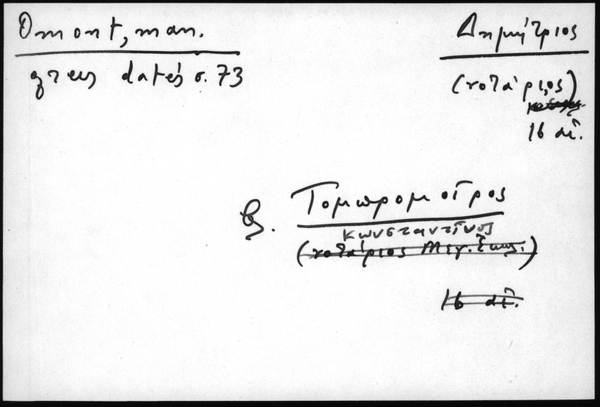 Omont, man.
grecs datés σ. 73
Δημήτριος
(νοτάριος)
16 αἰ.
βλ. Τομπρομοῖρος
Κωνσταντῖνος
(νοτάριος Μεγ. Ἐκκλ.)
16 αἰ.